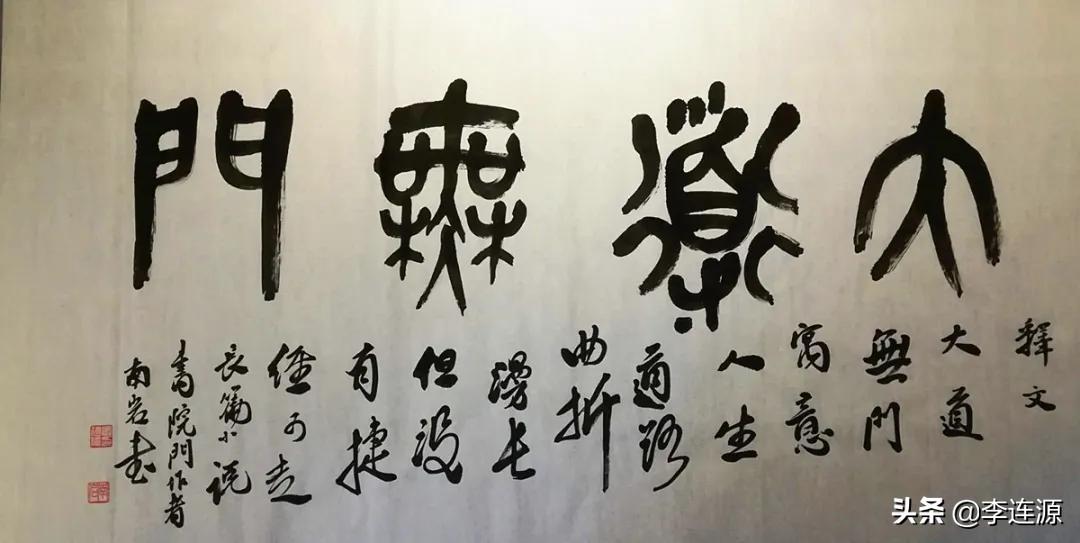 大道無門
釋文
大道
無門
寓意
人生
道路
曲折
漫长
但没
有捷
徑可走
長篇小说
書院門作者
南岩書
头条 @李连源